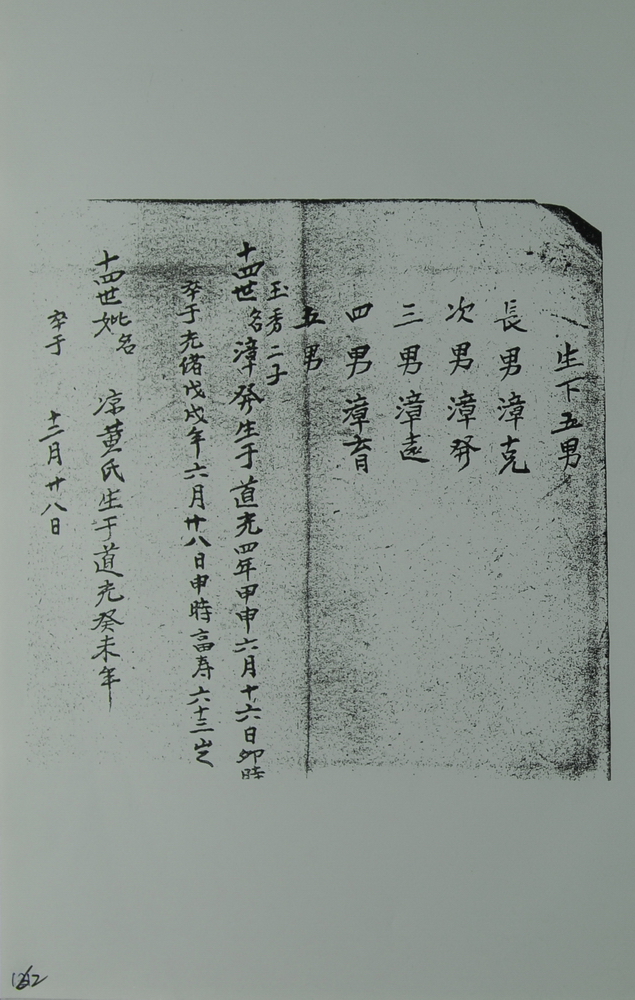 生下五男
長男漳克
次男漳發
三男漳遠
四男漳育
五男
玉秀二子
十四世名漳發生于道光四年甲申六月十六日卯時
卒于光緒戊戌年六月廿八日申時富寿六十三岁
十四世妣名 凉黄氏生于道光癸未年
卒于 十二月廿八日